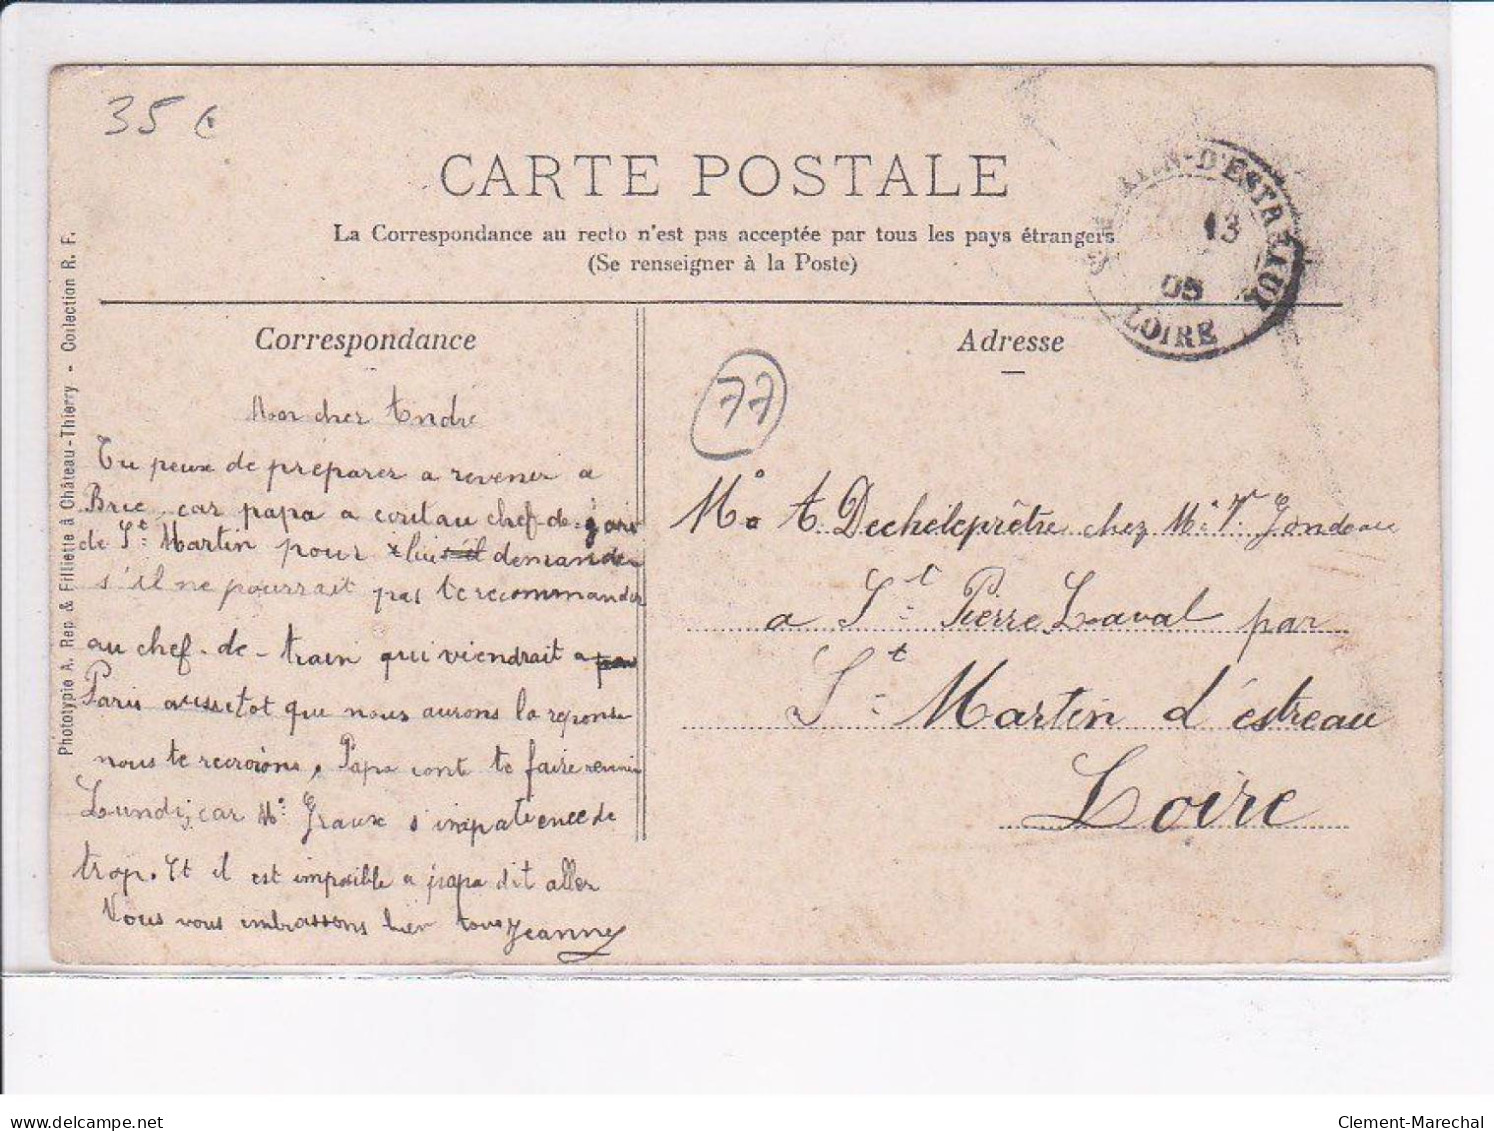 35 €
CARTE POSTALE
La Correspondance au recto n'est pas acceptée par tous les pays étrangers
(Se renseigner à la Poste)
13
05
LOIRE
Phototypie A. Rep. & Filliette à Château-Thierry - Collection R. F.
Correspondance
Mon cher André
Tu peux de préparer a revener a
Brie car papa a écrit au chef-de-gare
de St Martin pour lui demander
s'il ne pourrait pas te recommander
au chef-de-train qui viendrait a
Paris aussitot que nous aurons la reponse
nous te recrirons. Papa te faire revenir
Lundi, car Mr Graux s'impatiente de
trop. Et il est impossible a papa dit aller
Nous vous imbrassons bien tous Jeanne
Adresse
77
Mr A. Decheleprêtre chez Mr Vr Gondeau
a St Pierre Laval par
St Martin d'éstreau
Loire
delcampe.net
Clement-Marechal